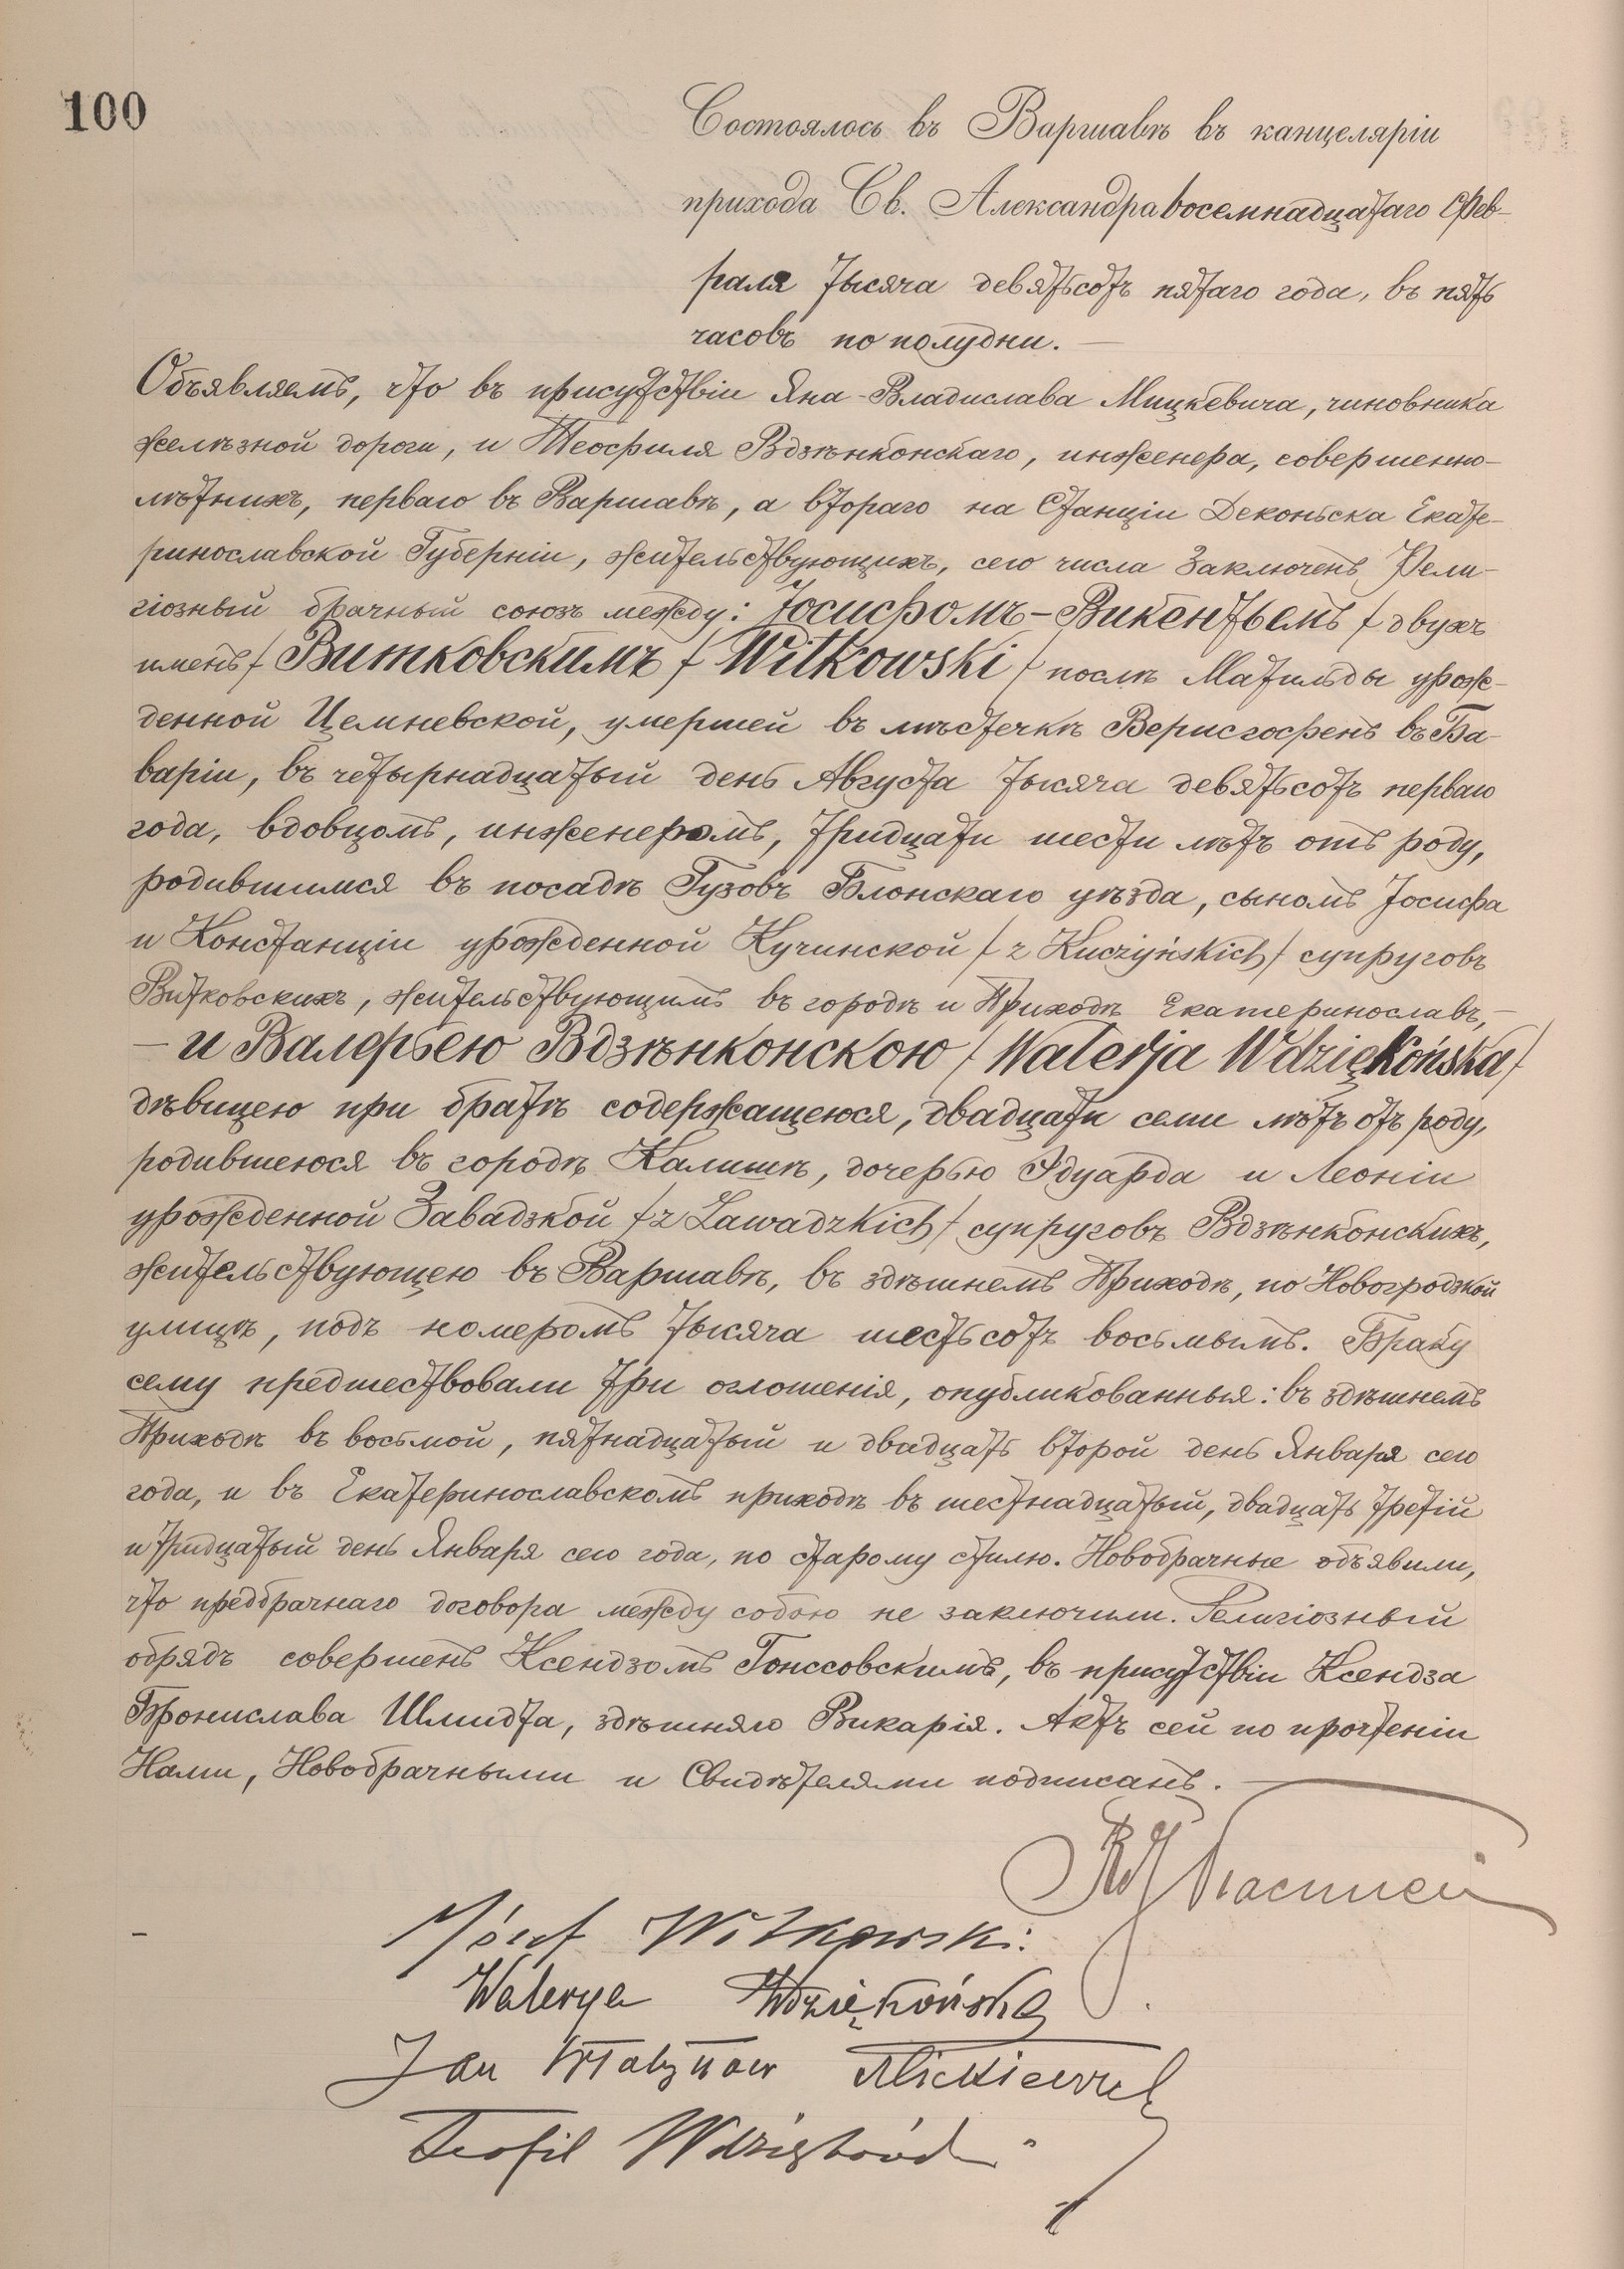 100
Состоялось въ Варшавѣ въ канцеляріи
прихода Св. Александра восемнадцатаго Фев-
раля тысяча девятьсотъ пятаго года, въ пять
часовъ по полудни. —
Объявляемъ, что въ присутствіи Яна-Владислава Мицкевича, чиновника
желѣзной дороги, и Теофиля Вдзѣнконскаго, инженера, совершенно-
лѣтнихъ, перваго въ Варшавѣ, а втораго на станціи Деконьска Екате-
ринославской Губерніи, жительствующихъ, сего числа заключенъ Рели-
гіозный брачный союзъ между: Іосифомъ-Викентьемъ / двухъ
именъ / Витковскимъ / Witkowski / послѣ Матильды урож-
денной Цемневской, умершей въ мѣстечкѣ Верисгофенъ въ Ба-
варіи, въ четырнадцатый день Августа тысяча девятьсотъ перваго
года, вдовцомъ, инженеромъ, тридцати шести лѣтъ отъ роду,
родившимся въ посадѣ Гузовъ Блонскаго уѣзда, сыномъ Іосифа
и Констанціи урожденной Кучинской / z Kuczyńskich / супруговъ
Витковскихъ, жительствующимъ въ городѣ и Приходѣ Екатеринославъ, —
— и Валерьею Вдзѣнконскою / Walerja Wdziękońska /
дѣвицею при братѣ содержащеюся, двадцати семи лѣтъ отъ роду,
родившеюся въ городѣ Калишѣ, дочерью Эдуарда и Леоніи
урожденной Завадзкой / z Zawadzkich / супруговъ Вдзѣнконскихъ,
жительствующею въ Варшавѣ, въ здѣшнемъ Приходѣ, по Новогродзкой
улицѣ, подъ номеромъ тысяча шестьсотъ восьмымъ. Браку
сему предшествовали три оглошенія, опубликованныя: въ здѣшнемъ
Приходѣ въ восьмой, пятнадцатый и двадцать второй день Января сего
года, и въ Екатеринославскомъ приходѣ въ шестнадцатый, двадцать третій
и тридцатый день Января сего года, по старому стилю. Новобрачные объявили,
что предбрачнаго договора между собою не заключили. Религіозный
обрядъ совершенъ Ксендзомъ Гонссовскимъ, въ присутствіи Ксендза
Бронислава Шмидта, здѣшняго Викарія. Актъ сей по прочтеніи
Нами, Новобрачными и Свидѣтелями подписанъ. —
Józef Witkowski.
Walerya Wdziękońska
Jan Władysław Mickiewicz
Teofil Wdziękoński